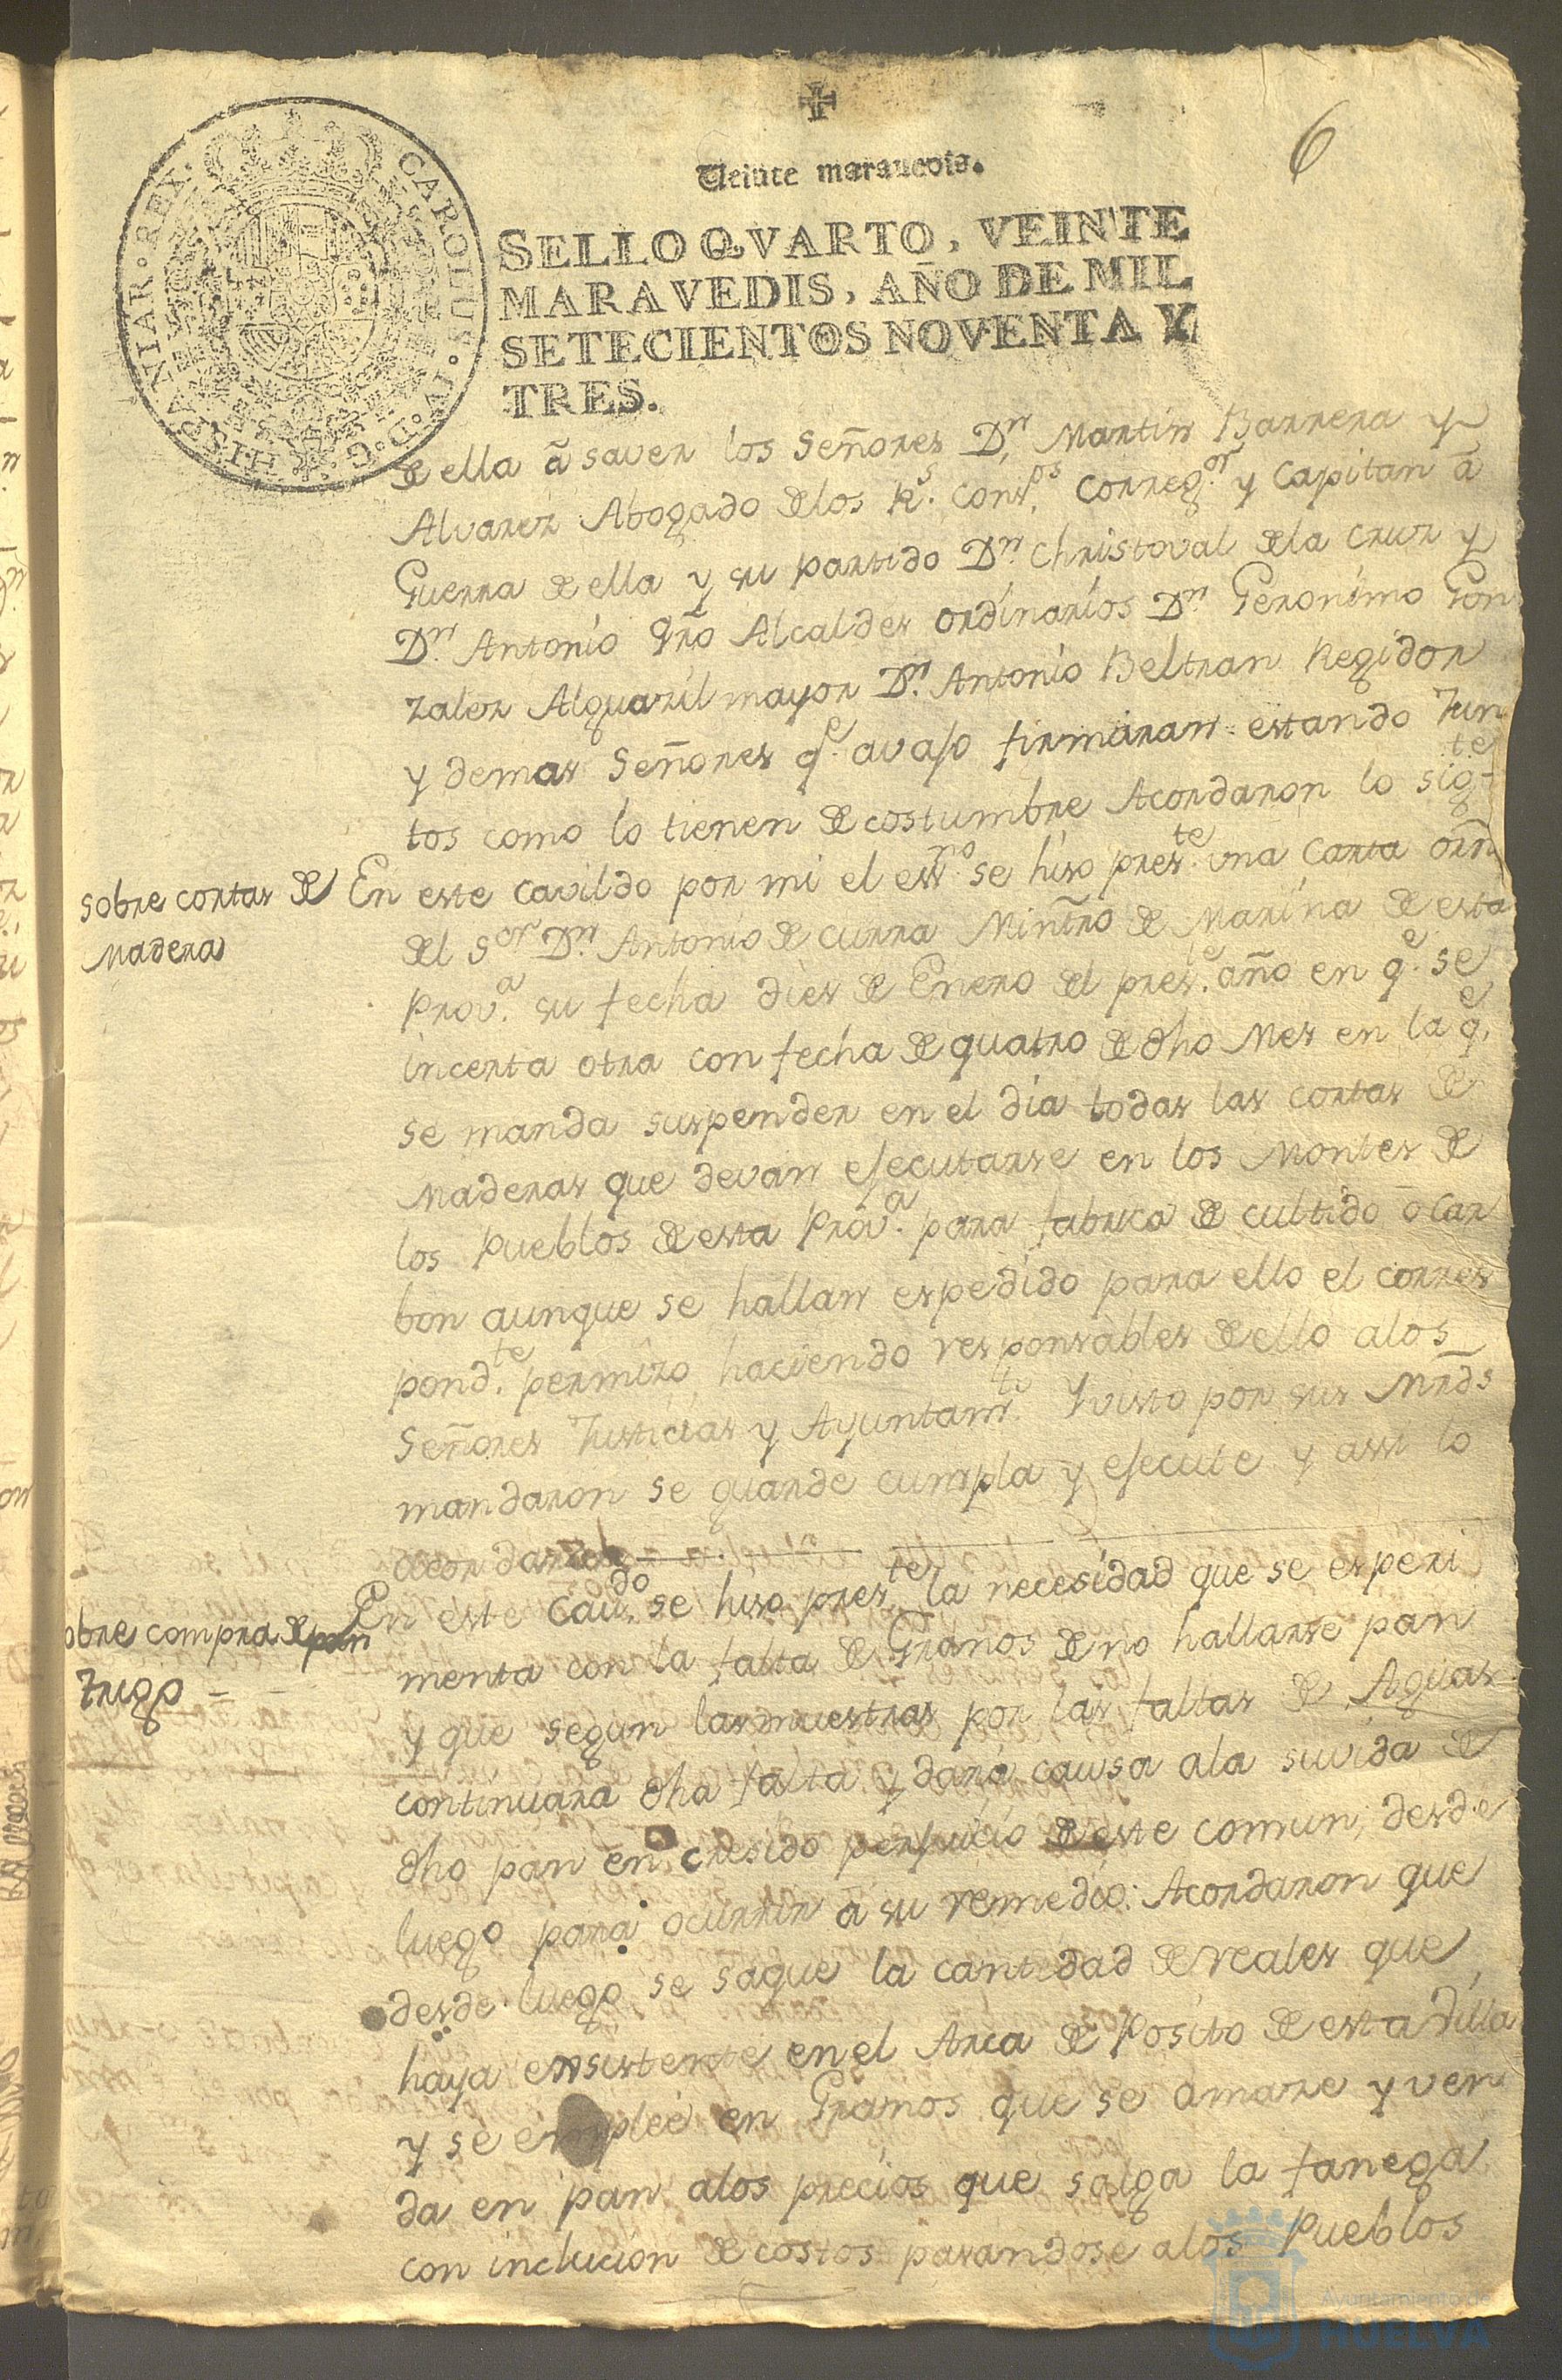 6
Veinte maravedis.
CAROLUS·IV·D·G·HISPANIAR·REX·
SELLO QVARTO, VEINTE
MARAVEDIS, AÑO DE MIL
SETECIENTOS NOVENTA Y
TRES.
de ella â saver los Señores Dn. Martin Barrera y
Alvarez Abogado de los Rs. Consos. Corregor. y Capitan â
Guerra de ella y su partido Dn. Christoval de la Cruz y
Dn. Antonio Qro Alcaldes ordinarios Dn. Geronimo Gon
zalez Alguazil mayor Dn. Antonio Beltran Regidor
y demas Señores qe. avajo firmaran estando Jun
tos como lo tienen de costumbre Acordaron lo sigte
sobre cortas de
Madera
En este cavildo por mi el essno. se hiso preste. una Carta orn
del Sor Dn. Antonio de curra Mintro de Marina de esta
Prova. su fecha dies de Enero del preste. año en qe. se
incerta otra con fecha de quatro de dho Mes en la qe.
se manda suspender en el dia todas las cortas de
Maderas que devan ejecutarse en los Montes de
los Pueblos de esta Prova. para fabrica de cultido ô Car
bon aunque se hallan espedido para ello el corres
pondte. permizo haciendo responsables de ello alos
Señores Justicias y Ayuntamto. Y visto por sus Mrds
mandaron se guarde cumpla y ejecute y assi lo
acordaron
obre compra de pan
Trigo
En este Cavdo. se hiso preste. la necesidad que se esperi
menta con la falta de Granos de no hallarse pan
y que segun las muestras por las faltas de Aguas
continuara dha falta y dará causa ala suvida de
dho pan en cresido perjuicio de este comun; desde
luego para ocurrir â su remedio: Acordaron que
desde luego se saque la cantidad de reales que
haya ensistente en el Arca de Posito de esta Villa
y se emplee en Granos que se amaze y ven
da en pan alos precios que salga la fanega
con inclucion de costos pasandose alos Pueblos
Ayuntamiento de
HUELVA